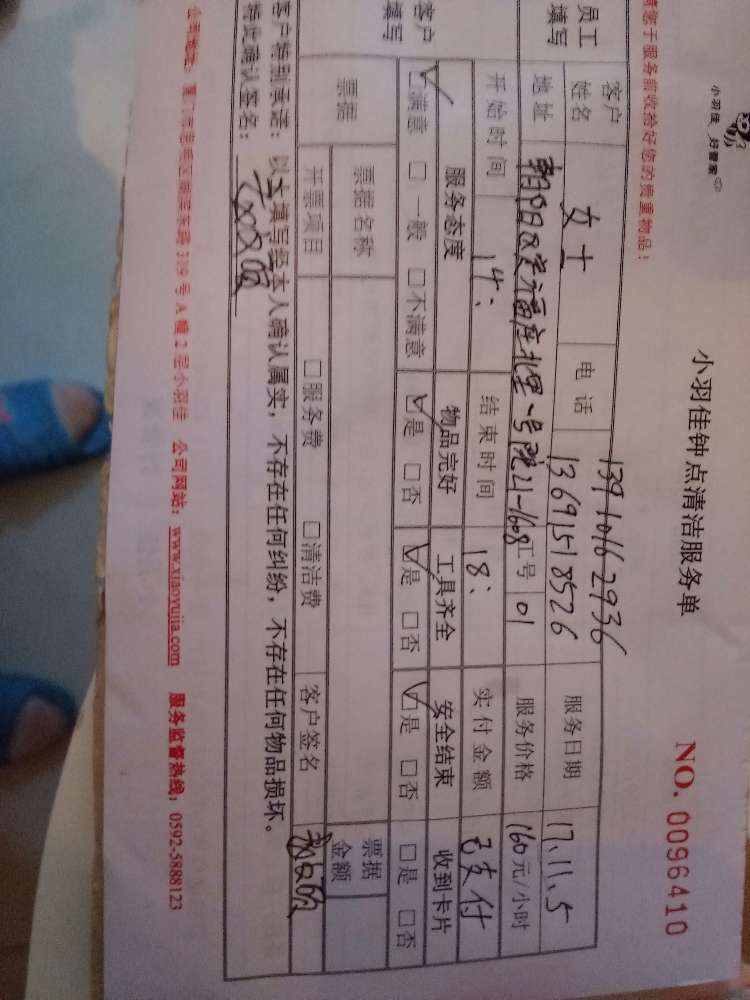 小羽佳 好管家
小羽佳钟点清洁服务单
NO. 0096410
请您于服务前收拾好您的贵重物品！
139 1016 2936
员工填写 客户姓名 女士 电话 13691518526 服务日期 17.11.5
地址 朝阳区 北里一号院21-1608 工号 01 服务价格 160元/小时
开始时间 14: 结束时间 18: 实付金额 已支付
客户填写 服务态度 物品完好 工具齐全 安全结束 收到卡片
☑满意 □一般 □不满意 ☑是 □否 ☑是 □否 ☑是 □否 □是 □否
票据 票据名称 票据金额
开票项目 □服务费 □清洁费 客户签名
客户特别承诺：以上填写经本人确认属实，不存在任何纠纷，不存在任何物品损坏。
特此确认签名：
公司地址：厦门市思明区湖滨东路319号A幢2层小羽佳 公司网站：www.xiaoyujia.com 服务监督热线：0592-5888123